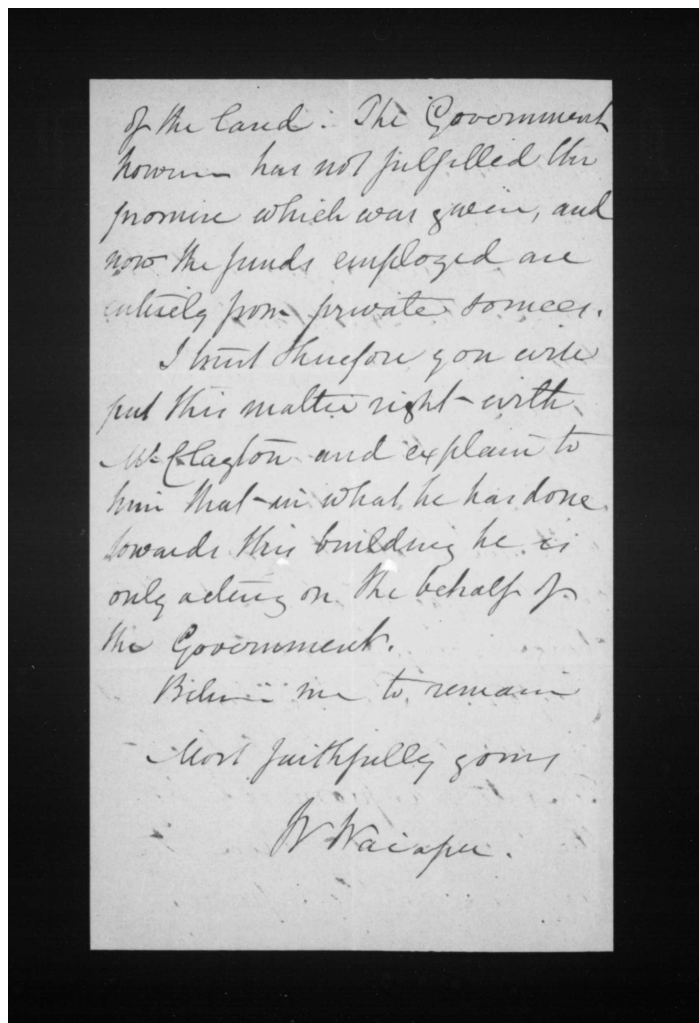 of the land. The Government
however has not fulfilled the
promise which was given, and
now the funds employed are
entirely from private sources.
I trust therefore you will
put this matter right with
Mr. Clayton and explain to
him that in what he has done
towards this building he is
only acting on the behalf of
the Government.
Believe me to remain
Most faithfully yours
W Waiapu.